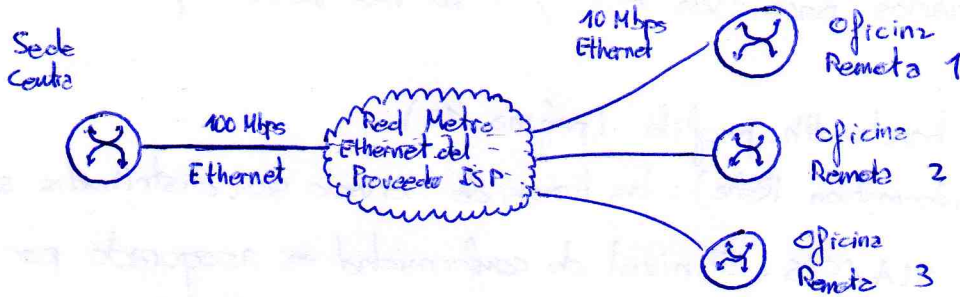 Sede
Central
100 Mbps
Ethernet
Red Metro
Ethernet del
Proveedor ISP
10 Mbps
Ethernet
Oficina
Remota 1
Oficina
Remota 2
Oficina
Remota 3